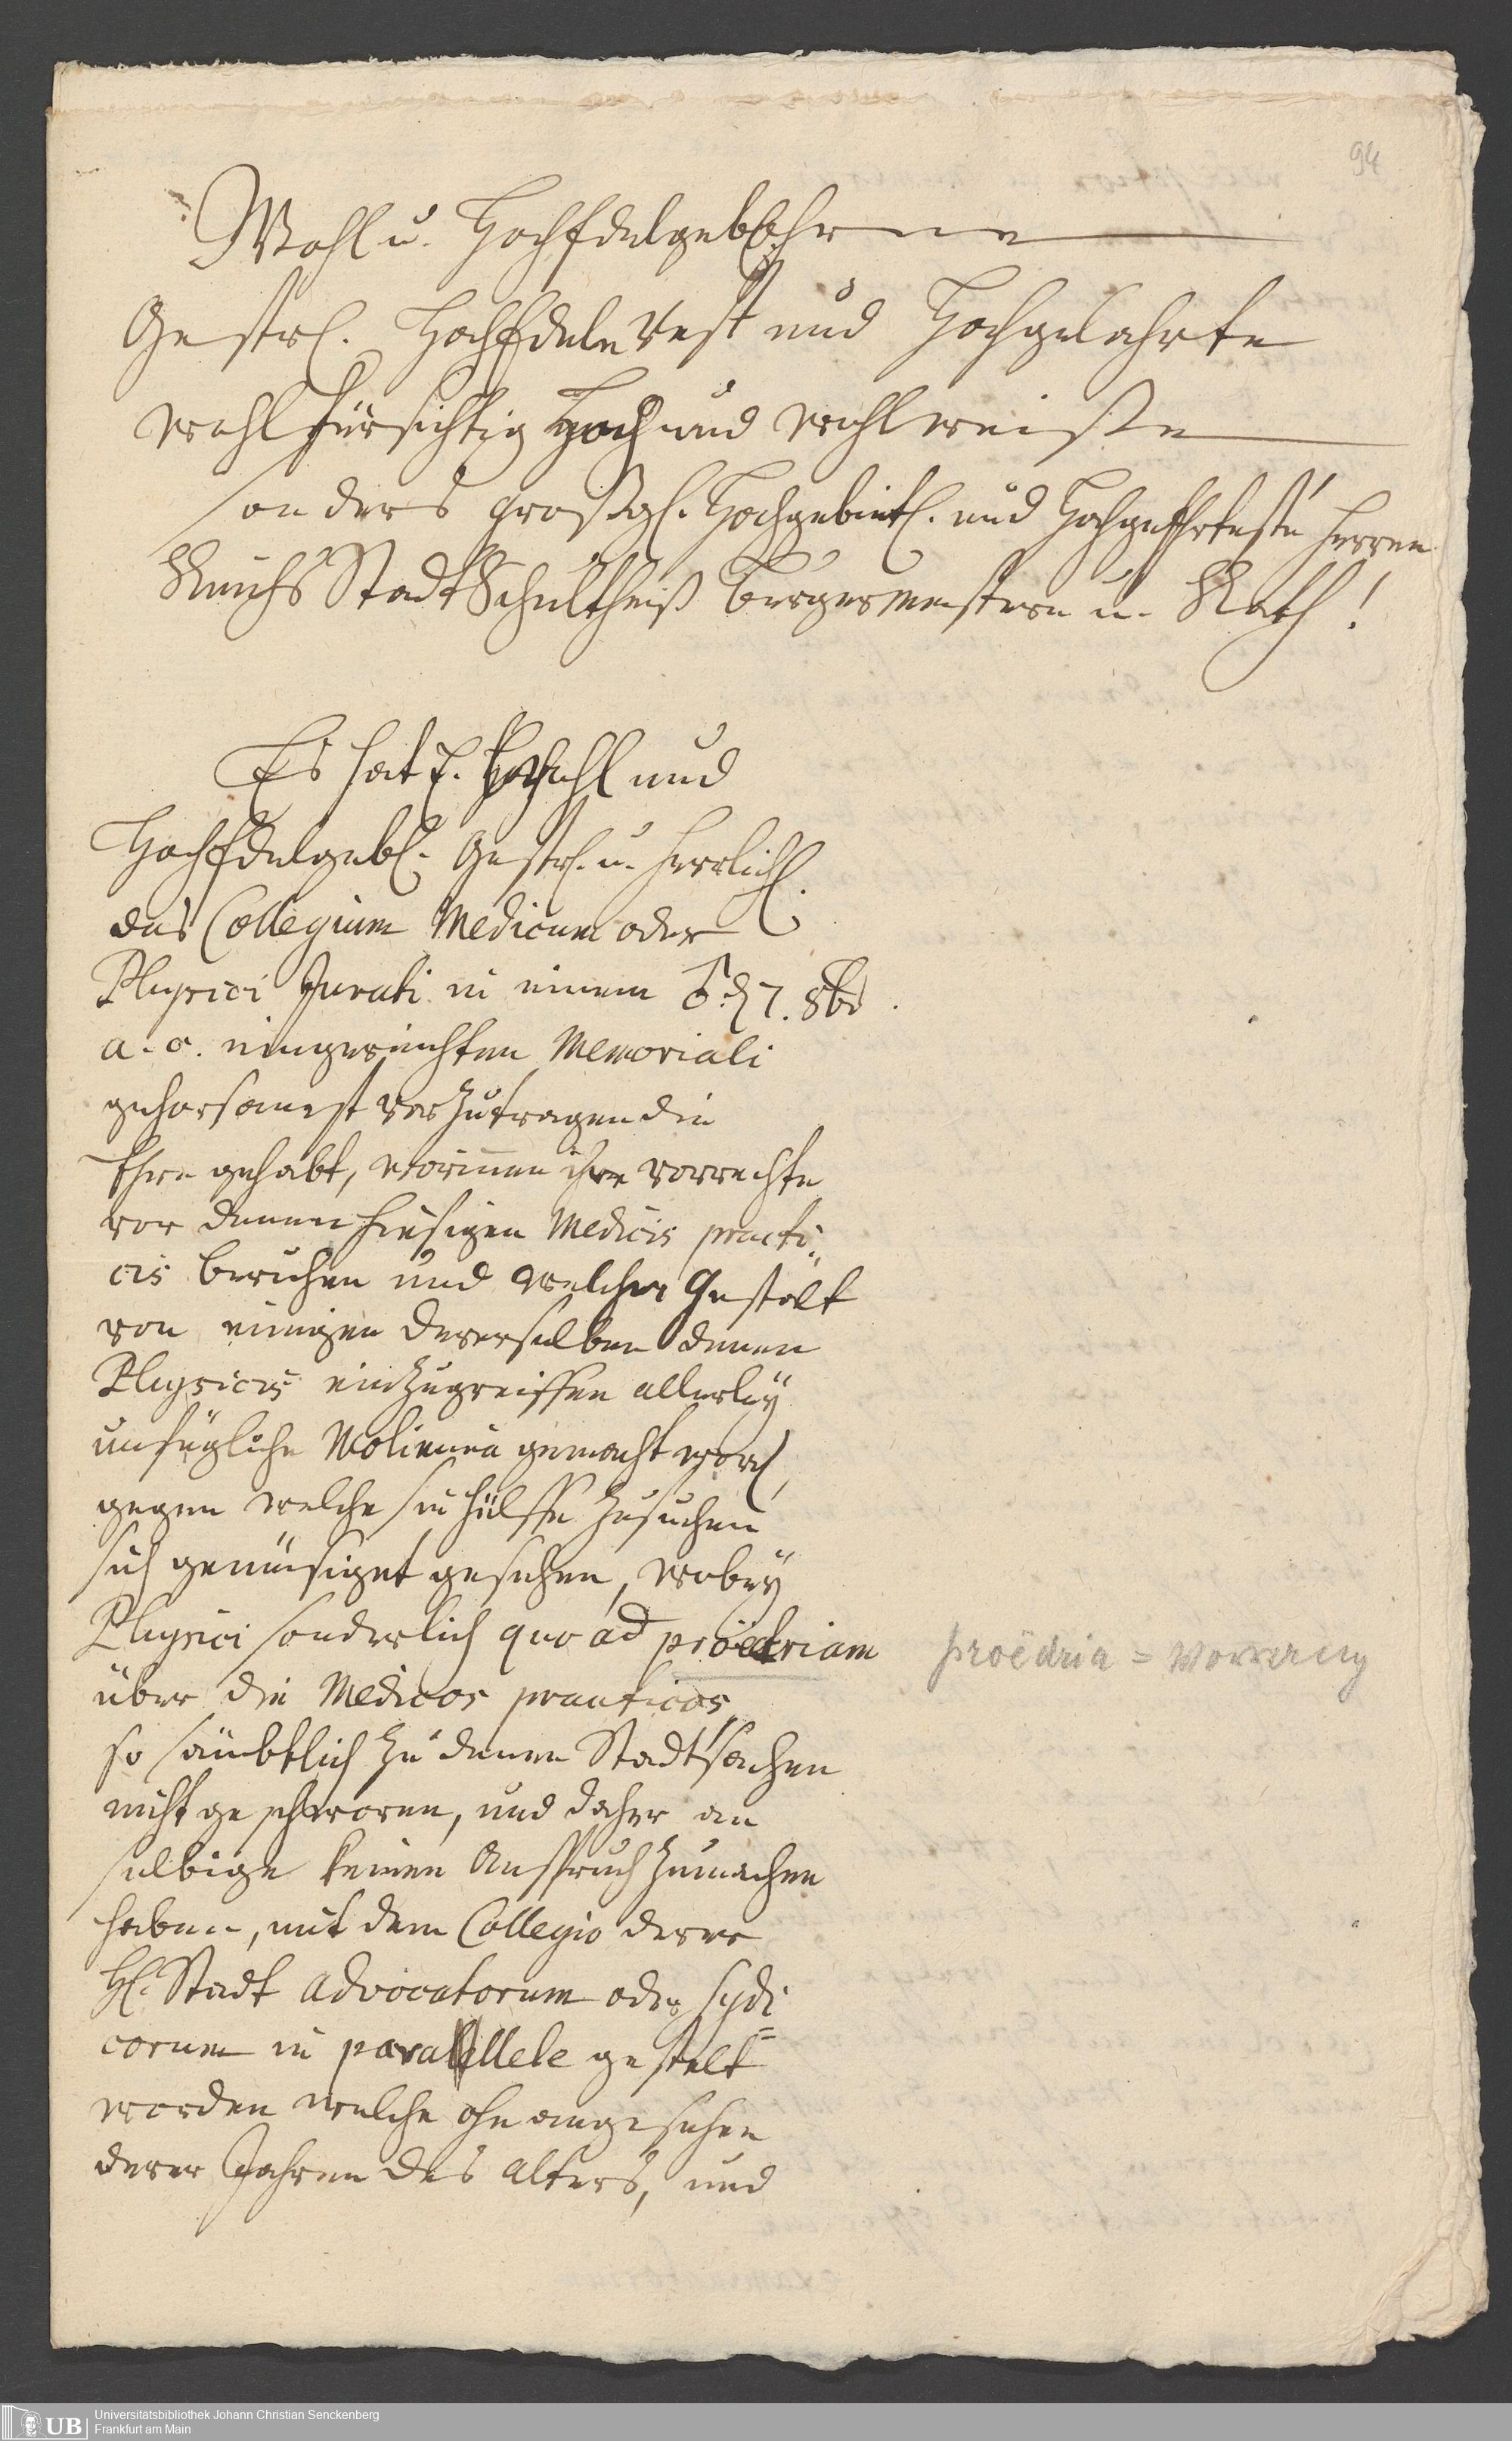 94
Wohl u. HochEdelgebohrne
Gestr. HochEdele Vest und Hochgelahrte
Wohlfürsichtig Hoch und wohlweise
sonders großgl. Hochgebietl. und Hochgeehrteste Herren
Reichs Stadt Schultheiß Burgermeistere u. Rath!
Es hat E. Wohl und
HochEdelgebl. Gestr. u. Herrlichl.
das Collegium Medicum oder
Physici Jurati in einem ♂ d 7. 8br.
a. c. eingereichten Memoriali
gehorsamst vorzutragen die
Ehre gehabt, worinnen ihre vorrechte
vor denen hiesigen Medicis practi-
cis beruhen und welcher Gestalt
von einigen dererselben denen
Physicis einzugreiffen allerley
unfügliche Molimina gemacht word,
gegen welche sie hülffe zu suchen
sich genmüsiget gesehen, wobey
Physici sonderlich quoad proëdriam
über die Medicos practicos,
so sämbtlich zu denen Stadtsachen
nicht geschworen, und daher an
selbige keinen Anspruch zumachen
haben, mit dem Collegio derer
H. Stadt Advocatorum oder Sydi-
corum in parallele gestelt
worden welche ohnangesehen
derer Jahren des Alters, und
proëdria = Vorrang
UB Universitätsbibliothek Johann Christian Senckenberg
Frankfurt am Main